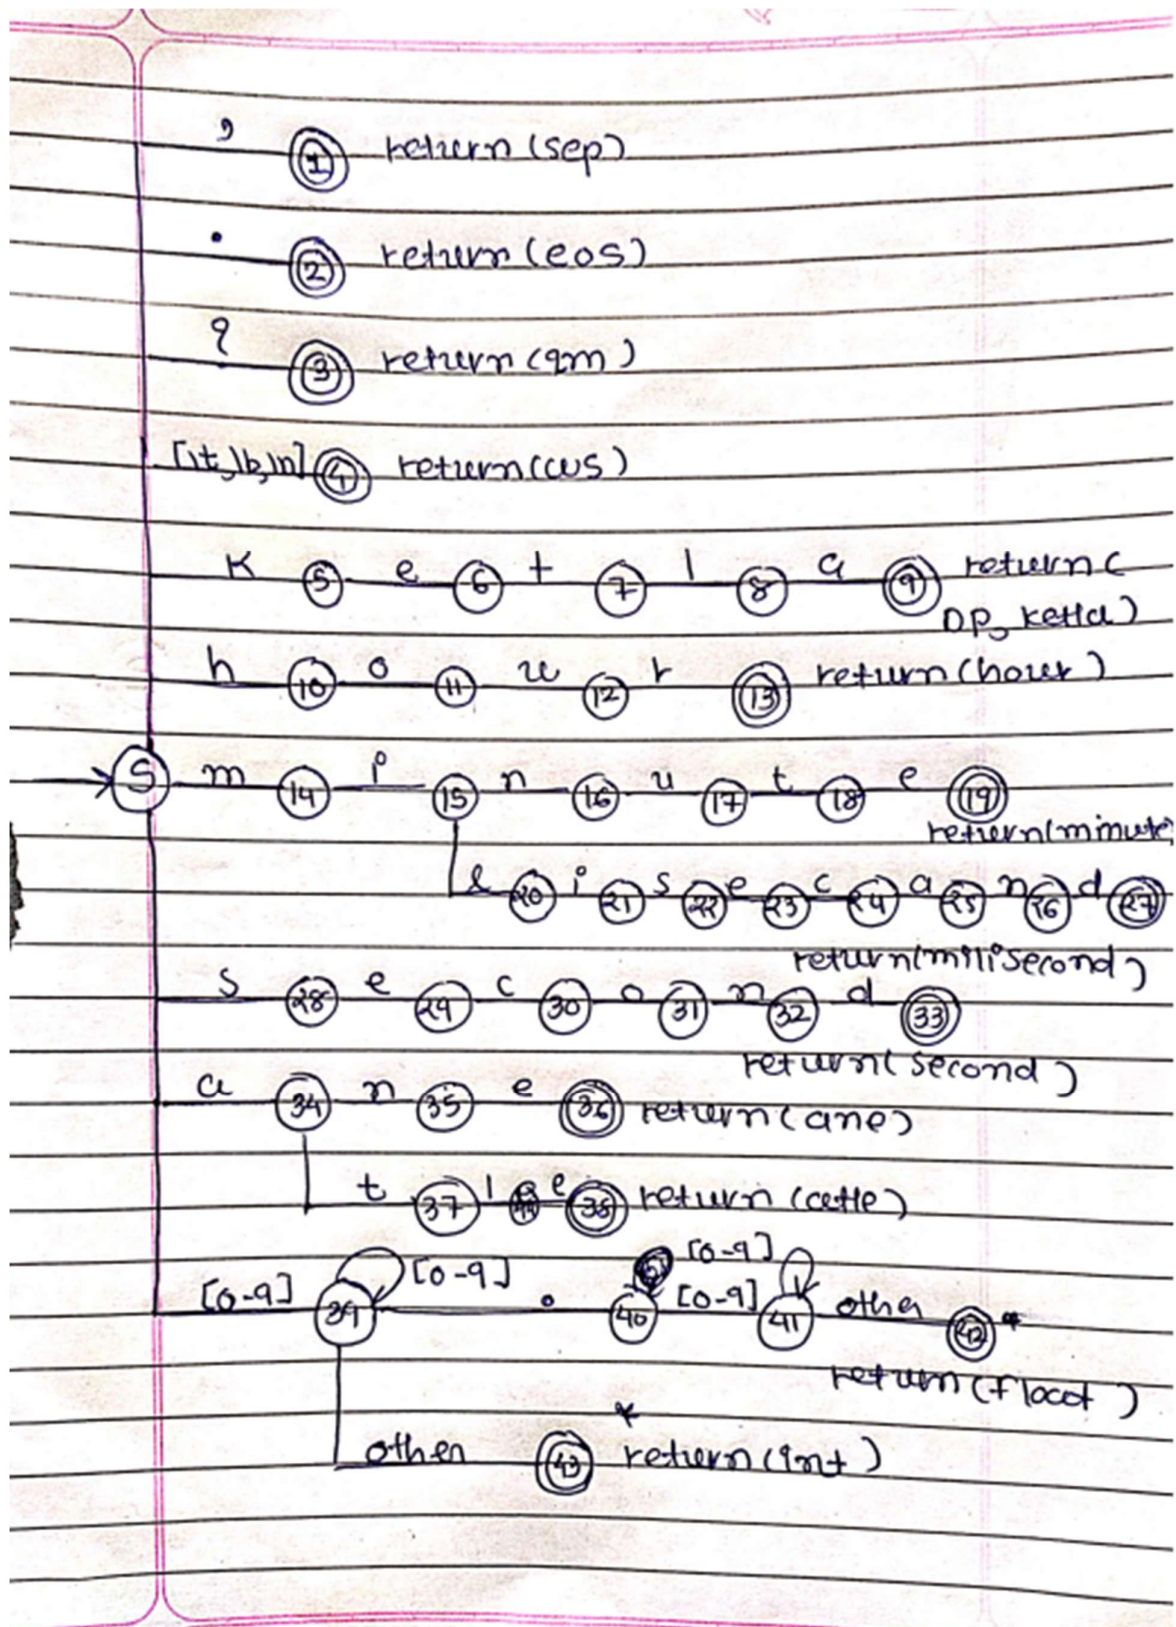 ,
1 return (sep)
.
2 return (eos)
?
3 return (qm)
[\t,\b,\n] 4 return (ws)
K 5 e 6 t 7 l 8 a 9 return (
op, ketla)
h 10 o 11 u 12 r 13 return (hour)
S m 14 i 15 n 16 u 17 t 18 e 19
return(minute)
l 20 i 21 s 22 e 23 c 24 o 25 n 26 d 27
return(millisecond)
s 28 e 29 c 30 o 31 n 32 d 33
return( second )
a 34 n 35 e 36 return (ane)
t 37 l e 38 return (atle)
[0-9]
[0-9] 39 [0-9] . 40 [0-9] 41 other 42 *
return (float)
*
other 43 return (int)